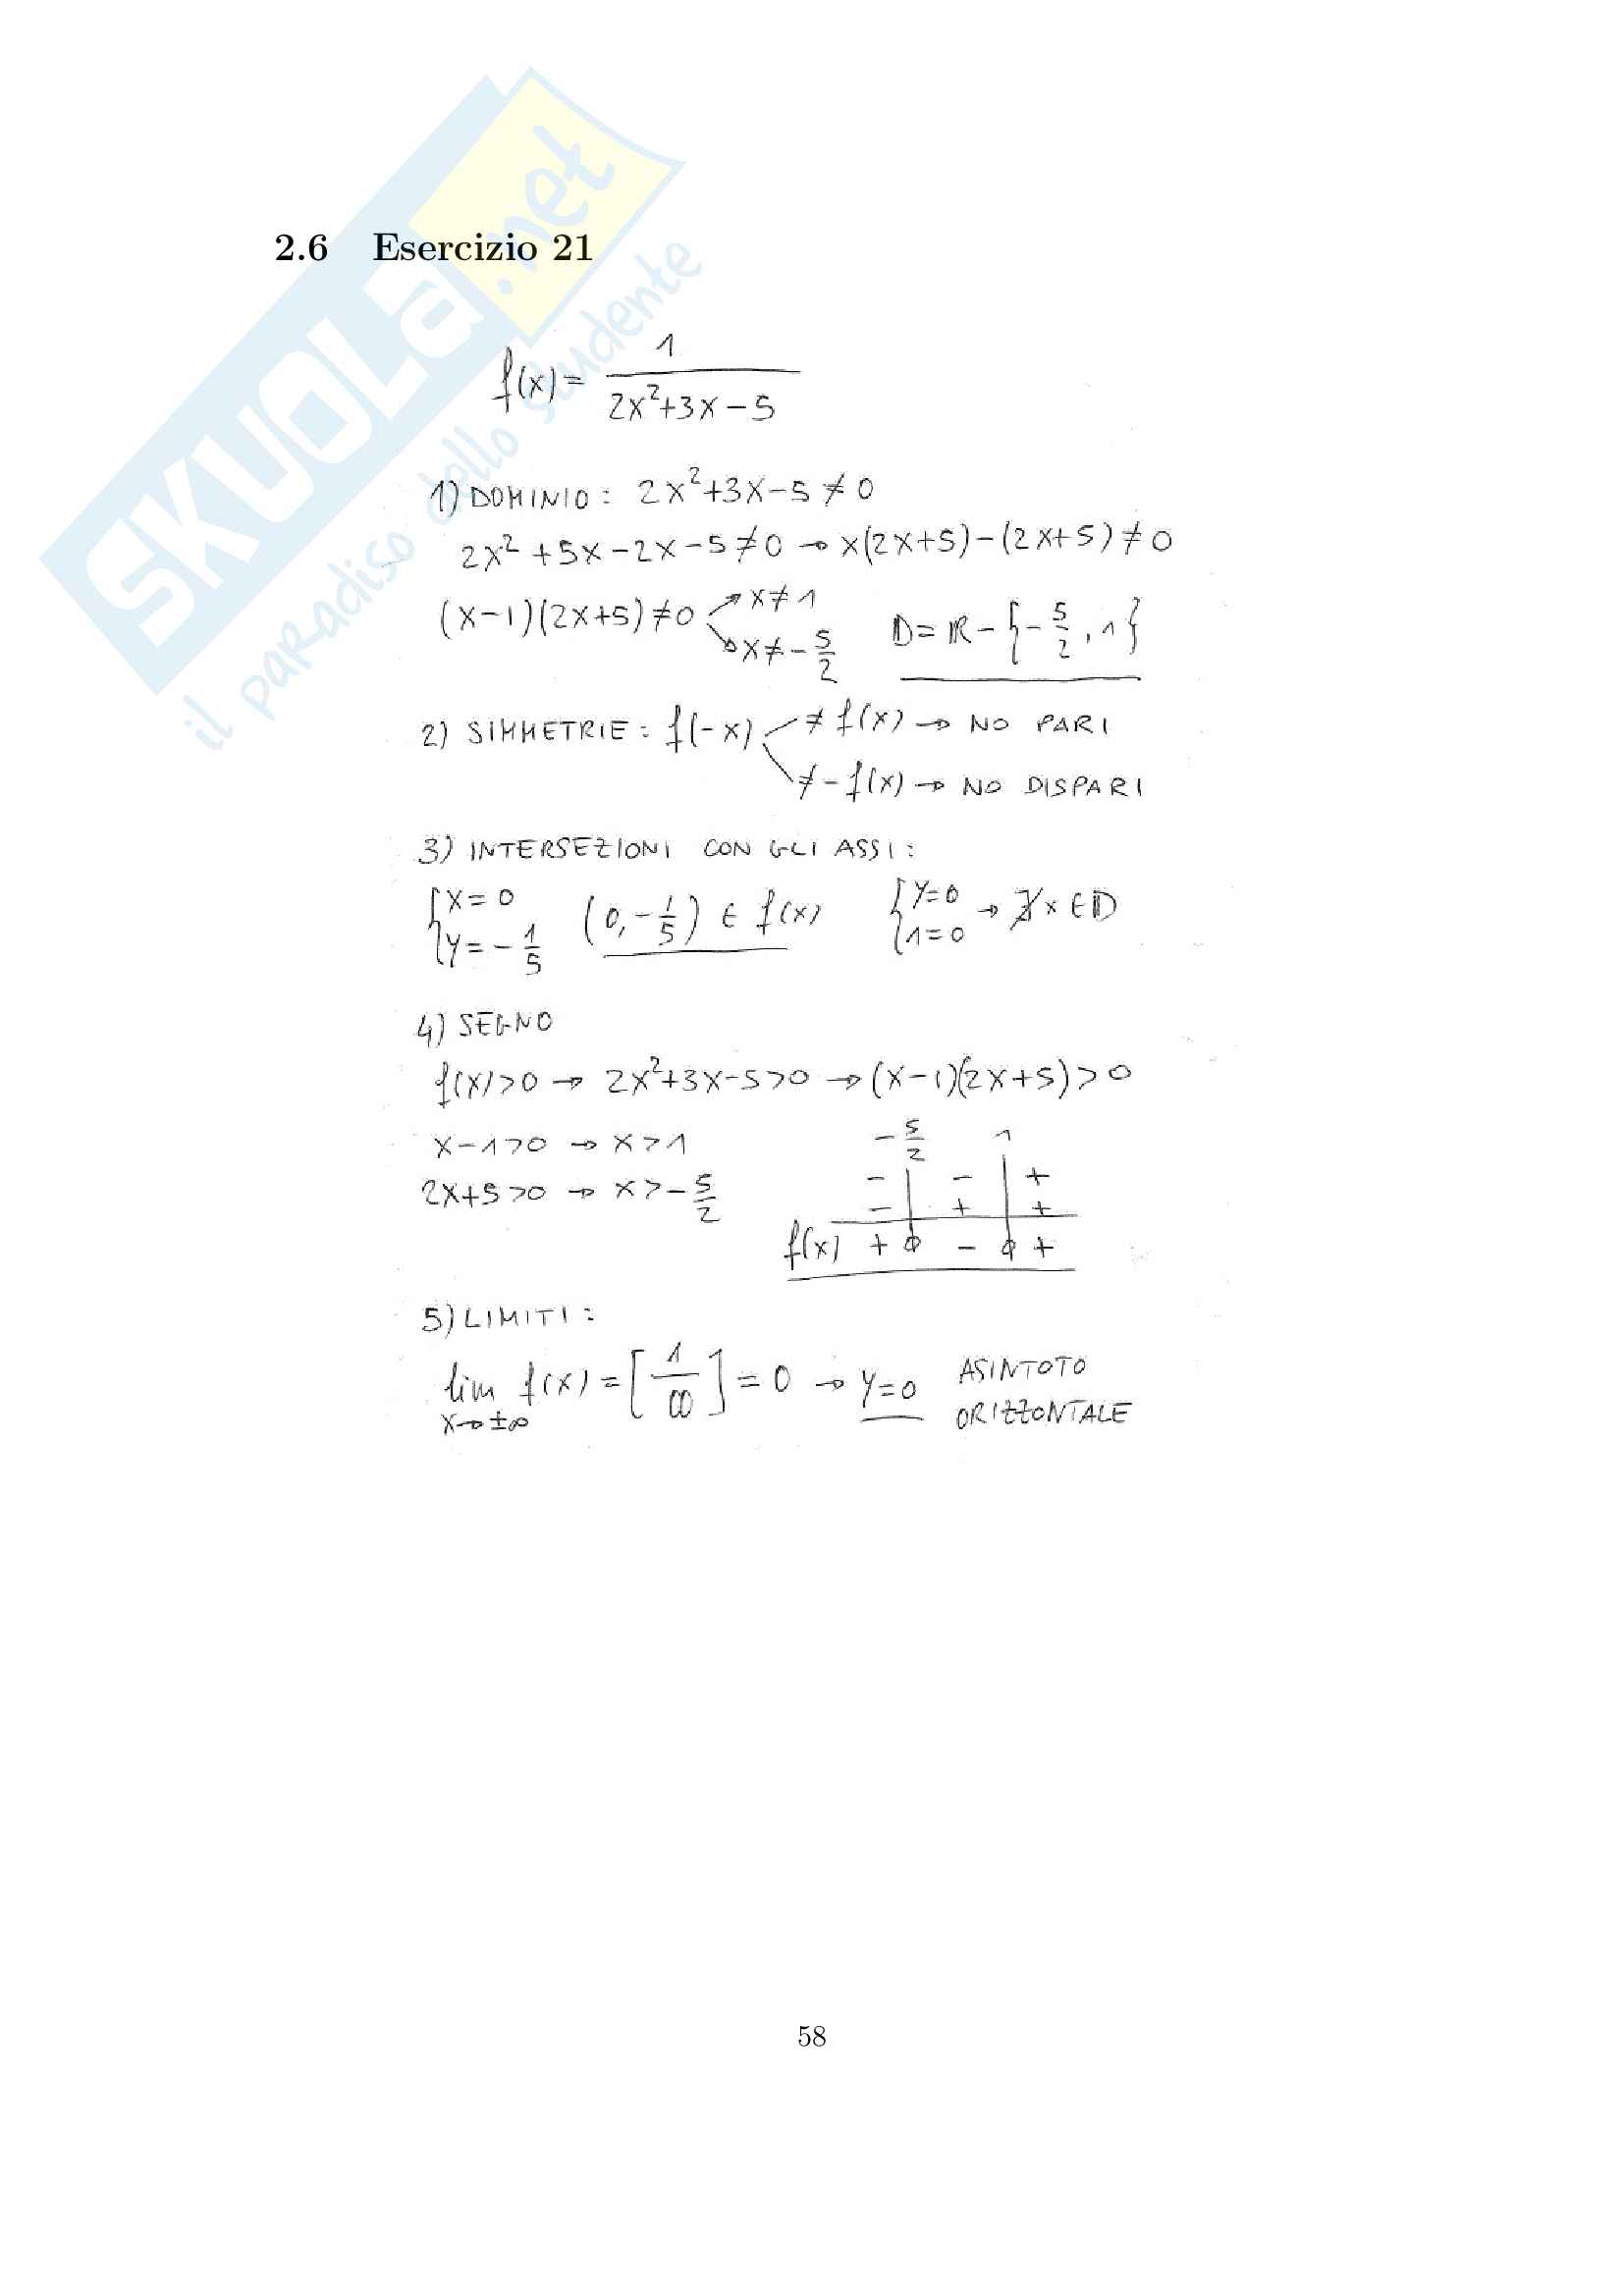 SKUOLA.net
il paradiso dello studente
2.6 Esercizio 21
f(x) = 1 / (2x²+3x-5)
1) DOMINIO: 2x²+3x-5≠0
2x²+5x-2x-5≠0 → x(2x+5)-(2x+5)≠0
(x-1)(2x+5)≠0 ↗ x≠1 ↘ x≠-5/2 D=ℝ-{-5/2,1}
2) SIMMETRIE: f(-x) ≠ f(x) → NO PARI
≠-f(x) → NO DISPARI
3) INTERSEZIONI CON GLI ASSI:
{x=0 y=-1/5 (0,-1/5) ∈ f(x) {y=0 1=0 → ∄x∈D
4) SEGNO
f(x)>0 → 2x²+3x-5>0 → (x-1)(2x+5)>0
x-1>0 → x>1
2x+5>0 → x>-5/2
-5/2 1
- - +
- + +
f(x) + ϕ - ϕ +
5) LIMITI:
lim x→±∞ f(x) = [1/∞] = 0 → y=0 ASINTOTO
ORIZZONTALE
58